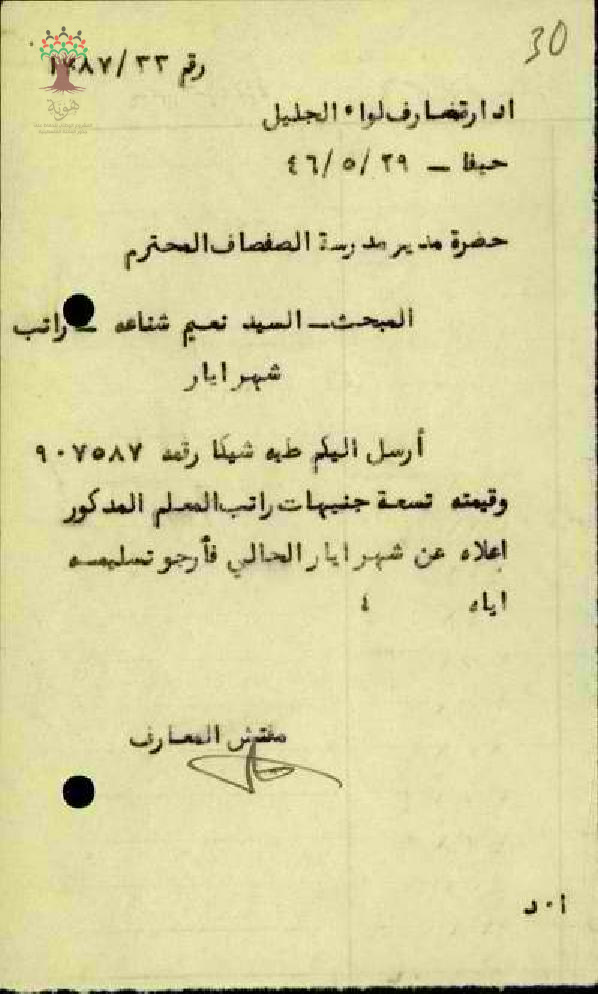 30
رقم ١٣٨٧/٣٣
هوية
ادارة معارف لواء الجليل
حيفا – ٢٩/٥/٤٦
حضرة مدير مدرسة الصفصاف المحترم
المبحث – السيد نعيم شناعه – راتب
شهر ايار
أرسل اليكم طيه شيكا رقمه ٩٠٧٥٨٧
وقيمته تسعة جنيهات راتب المعلم المدكور
اعلاه عن شهر ايار الحالي فأرجو تسليمه
اياه ؛
مفتش المعارف
أ٠د